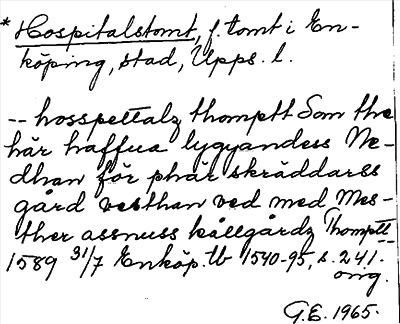 * Hospitalstomt, f. tomt i En-
köping, stad, Upps. l.
-- hosspettalz thomptt Som the
här haffua lygyandess Ne-
dhan för phär skräddarss
gård vesthan ved med Mes-
ther assnuss kållgårdz Thomptt --
1589 31/7 Enköp. tb 1540-95, s. 241.
orig.
G.E. 1965.